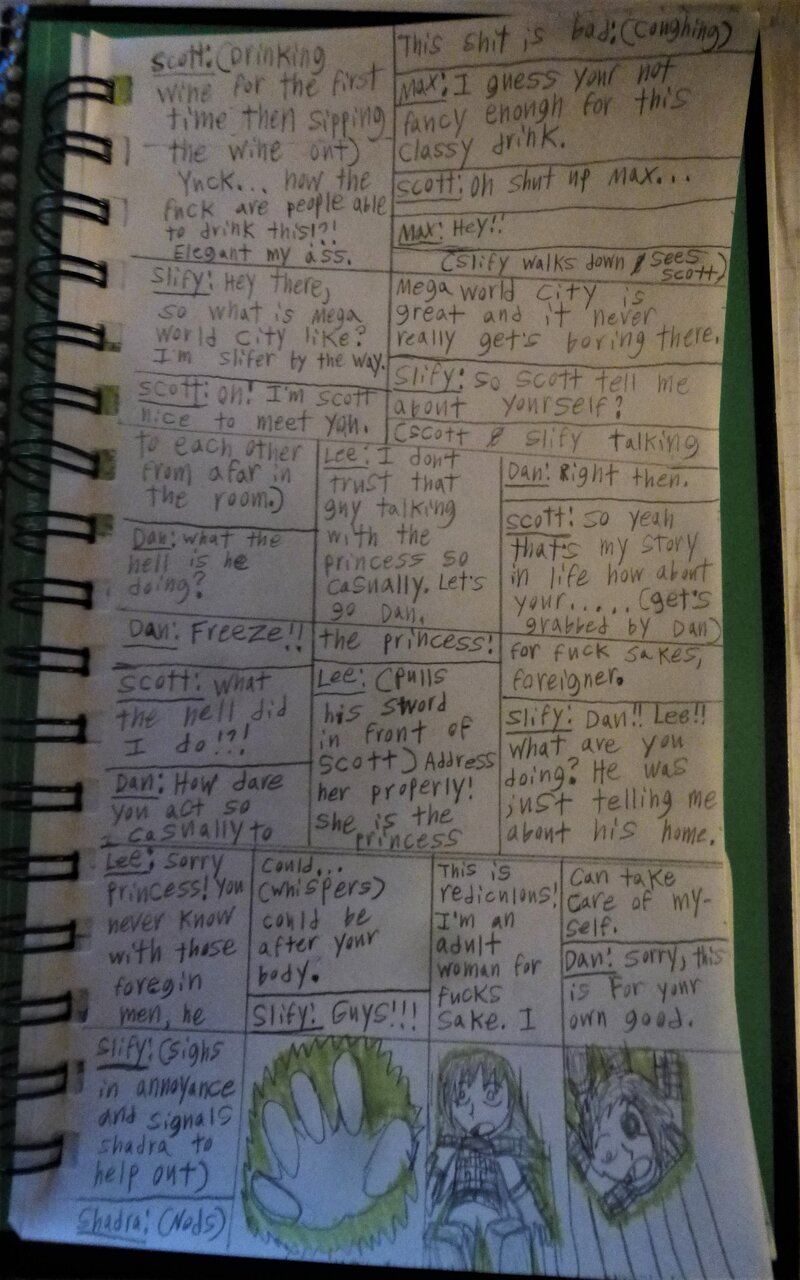 Scott: (Drinking
wine for the first
time then sipping
the wine out)
Yuck... how the
fuck are people able
to drink this!?!
Elegant my ass.
This shit is bad: (coughing)
Max: I guess your not
fancy enough for this
classy drink.
Scott: Oh shut up Max...
Max: Hey!!
(Slify walks down & sees
scott)
Slify: Hey there,
so what is Mega
World City like?
I'm slifer by the way.
Scott: Oh! I'm Scott
nice to meet yoh.
Mega World City is
great and it never
really get's boring there.
Slify: So Scott tell me
about yourself?
(Scott & Slify talking
to each other
from afar in
the room.)
Dan: What the
hell is he
doing?
Lee: I don't
trust that
guy talking
with the
princess so
casually. Let's
go Dan.
Dan: Right then.
Scott: So yeah
that's my story
in life how about
your..... (get's
grabbed by Dan)
Dan: Freeze!!
Scott: What
the hell did
I do!?!
Dan: How dare
you act so
casually to
the princess!
Lee: (pulls
his sword
in front of
Scott) Address
her properly!
she is the
princess
for fuck sakes,
foreigner.
Slify: Dan!! Lee!!
What are you
doing? He was
just telling me
about his home.
Lee: Sorry
princess! You
never know
with those
foregin
men, he
could...
(whispers)
could be
after your
body.
Slify: Guys!!!
This is
rediculous!
I'm an
adult
woman for
fucks
sake. I
Can take
care of my-
self.
Dan: Sorry, this
is for your
own good.
Slify: (sighs
in annoyance
and signals
shadra to
help out)
Shadra: (Nods)